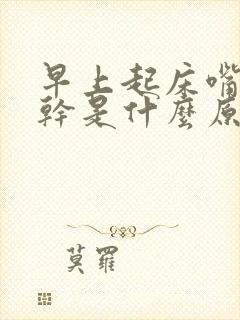 早上起床嘴
幹是什麼原
莫羅